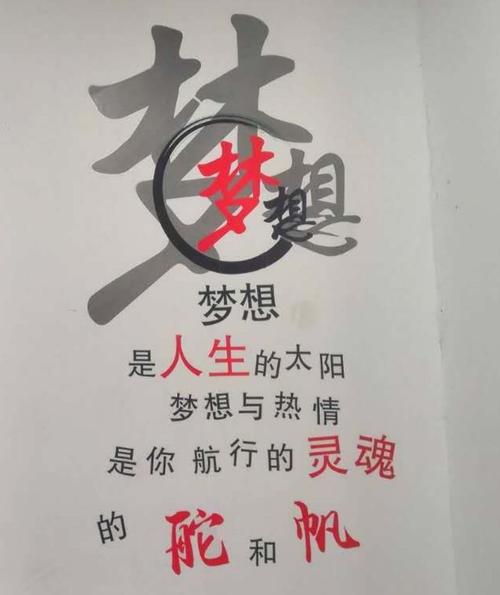 梦想
梦想
梦想
是人生的太阳
梦想与热情
是你航行的灵魂
的舵和帆